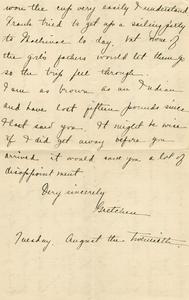 wore the cup very easily I understand
Frank tried to get up a sailing party
to Mackinac to day, but none of
the girls fathers would let them go
so the trip fell through.
I am as brown as an Indian
and have lost fifteen pounds since
I last saw you. It might be wise
if I did get away before you
arrived it would save you a lot of
disappointment
Very sincerely
Gretchen
Tuesday August the Twentieth